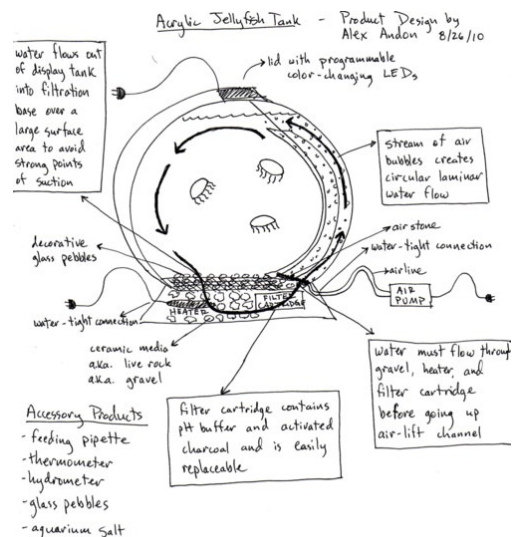 Acrylic Jellyfish Tank - Product Design by
Alex Andon 8/26/10
water flows out
of display tank
into filtration
base over a
large surface
area to avoid
strong points
of suction
lid with programmable
color-changing LEDs
stream of air
bubbles creates
circular laminar
water flow
decorative
glass pebbles
air stone
water-tight connection
airline
AIR
PUMP
HEATER
FILTER
CARTRIDGE
water-tight connection
ceramic media
aka. live rock
a.k.a. gravel
water must flow through
gravel, heater, and
filter cartridge
before going up
air-lift channel
filter cartridge contains
pH buffer and activated
charcoal and is easily
replaceable
Accessory Products
- feeding pipette
- thermometer
- hydrometer
- glass pebbles
- aquarium salt